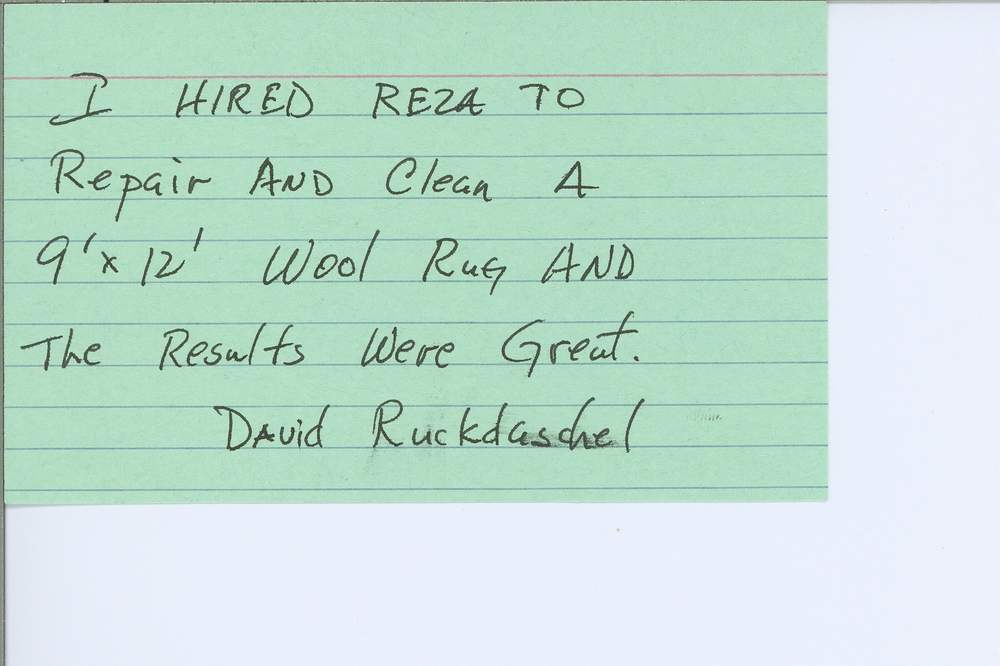 I HIRED REZA TO
Repair AND Clean A
9'x12' Wool Rug AND
The Results Were Great.
David Ruckdaschel